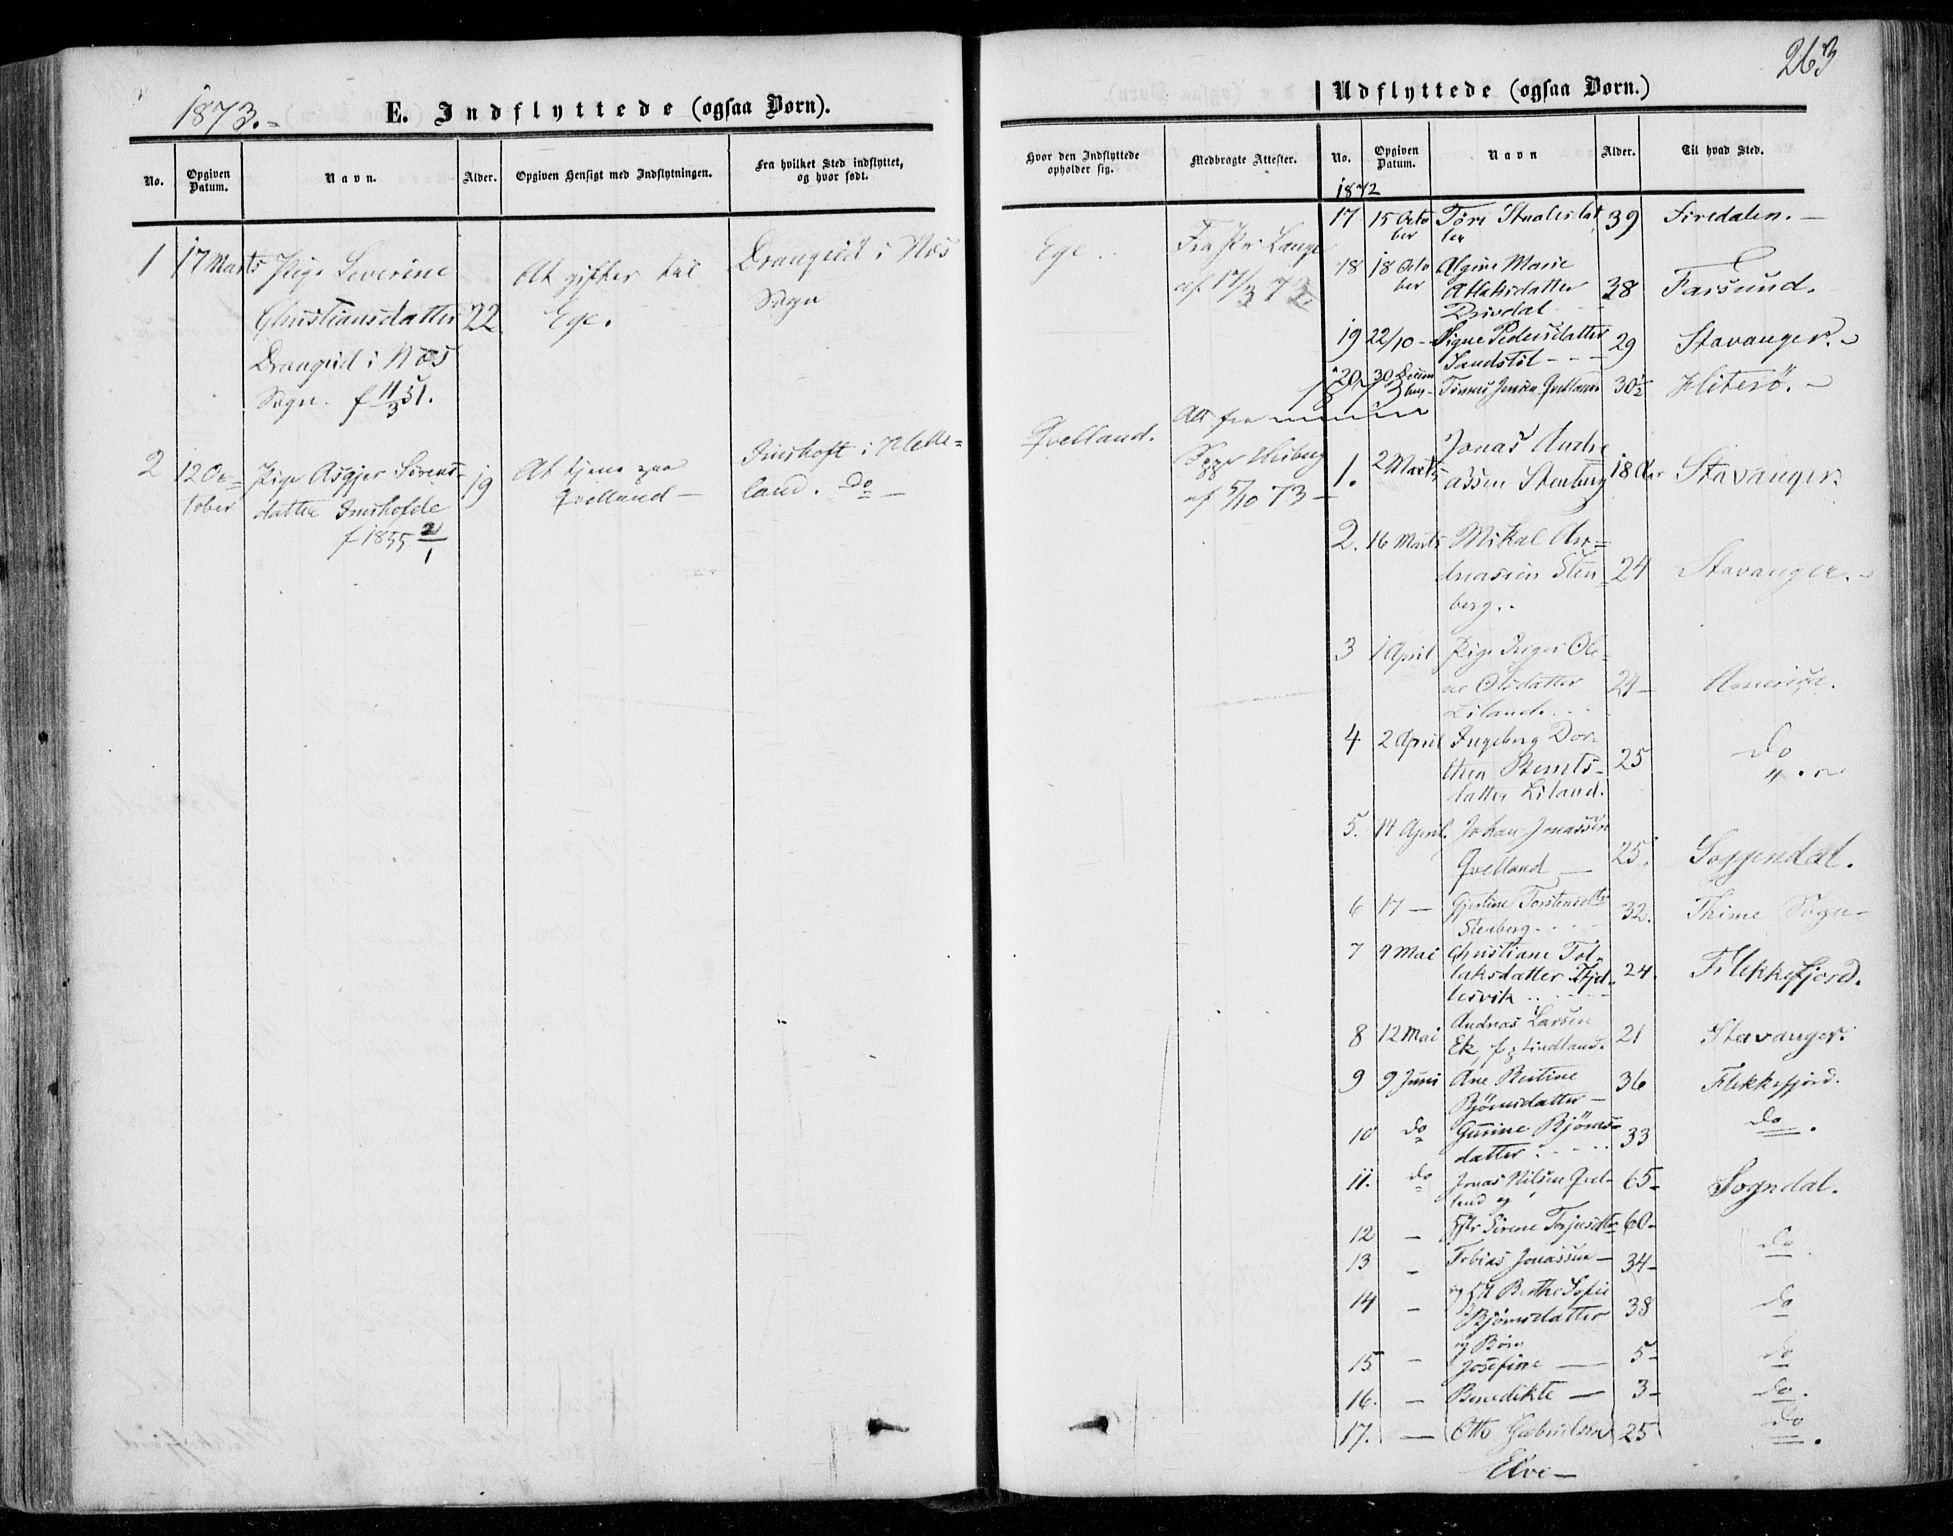 1873.
E. Indflyttede (ogsaa Børn).
No.
Opgiven Datum.
Navn.
Alder.
Opgiven Hensigt med Indflytningen.
Fra hvilket Sted indflyttet, og hvor født.
1
17 Marts
Pige Severine
Christiansdatter
Drangeid i Næs
Sogn. f 11/3 51.
22
At giftes til
Ege.
Drangeid i Næs
Sogn
2
12 Oc=
tober
Pige Asgjer Sørens-
datter
f 1855 2/1
19
At tjene paa
Qvelland —
land. do —
263
Udflyttede (ogsaa Børn.)
Hvor den Indflyttede opholder sig.
Medbragte Attester.
No.
Opgiven Datum.
Navn
Alder.
Til hvad Sted.
Ege
Fra Pr. Lange
af 17/3 73
Qvelland.
Att fra
af 5/10 73 —
1872
17
15 Octo
ber
39
Siredalen. —
18
18 Octo
ber
Marie
Atlaksdatter
Drivdal
38
Farsund.
19
22/10 -
Signe Pedersdatter
29
Stavanger.
20
30 Decem
ber
Tønnes Jensen Qvelland
30½
Hiterø.
1873
1.
2 Marts
Jonas Andre
assen Stenberg
18 Aar
Stavanger
2.
16 Marts
Mikal An=
dreasen Sten
berg..
24
Stavanger.
3
1 April
Pige Inger Ole-
ne Olsdatter
Liland
24 —
America.
4.
2 April
Ingeborg Dor-
thea Bernts-
datter Liland.
25
do
5.
14 April.
Johan Jonassen
Qvelland —
25.
Soggendal.
6
17 —
Gjertine Torstensdtr
Stenberg
32.
Thime Sogn
7
4 Mai
Christiane Tol-
laksdatter
lesvik
24.
Flekkefjord.
8
12 Mai
Andreas Larsen
Ek, f. Lindland.
21
Stavanger.
9
9 Juni
Ane Bertine
Bjørnsdatter —
36
Flekkefjord.
10
do
Gurine Bjørns-
datter
33
do
11.
do
Jonas Nilsen Qvel-
land og
65 —
Sogndal.
12
—
Sirene Torjusdtr
60 —
13
—
Tobias Jonassen —
34 —
do
14
—
og Berthe Sofie
Bjørnsdatter
38
do
og Børn
15
—
Josefine —
5 —
do
16.
—
Benedikte —
3 —
do.
17.
—
Otto Gabrielsen
25
do
Elve —